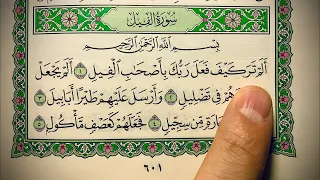 سُورَةُ الفِيلِ
بِسْمِ اللَّهِ الرَّحْمَٰنِ الرَّحِيمِ
أَلَمْ تَرَ كَيْفَ فَعَلَ رَبُّكَ بِأَصْحَابِ الْفِيلِ ١ أَلَمْ يَجْعَلْ
هُمْ فِي تَضْلِيلٍ ٢ وَأَرْسَلَ عَلَيْهِمْ طَيْرًا أَبَابِيلَ ٣
مِّن سِجِّيلٍ ٤ فَجَعَلَهُمْ كَعَصْفٍ مَّأْكُولٍ ٥
٦٠١